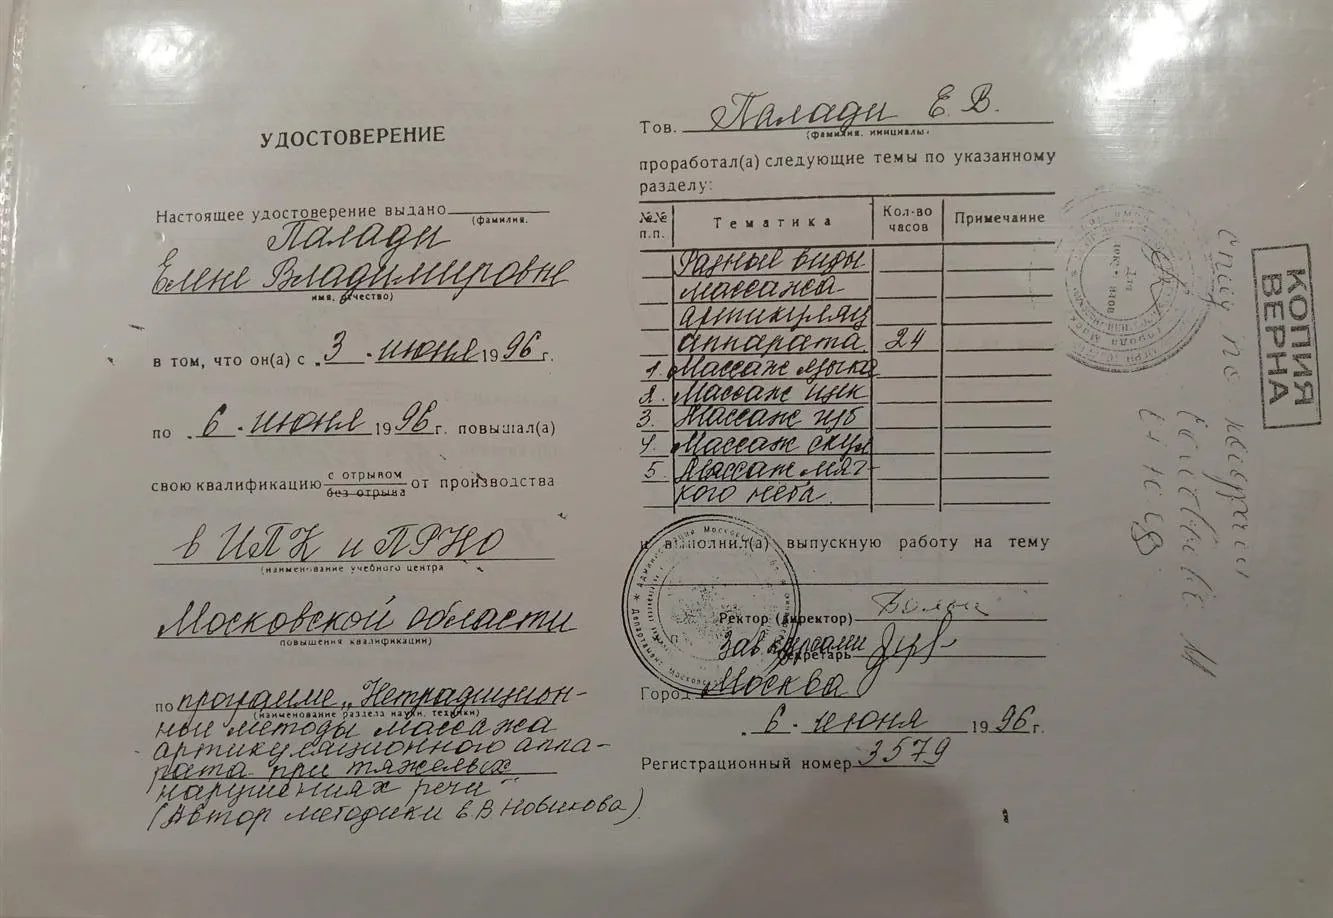 УДОСТОВЕРЕНИЕ
Настоящее удостоверение выдано
(фамилия,
Палади
Елене Владимировне
имя, отчество)
в том, что он(а) с „3 · июня 1996 г.
по „6 · июня 1996 г. повышал(а)
с отрывом
свою квалификацию без отрыва от производства
в ИПК и ПРНО
(наименование учебного центра
Московской области
повышения квалификации)
по программе „Нетрадицион-
(наименование раздела науки, техники)
ные методы массажа
артикуляционного аппа-
рата при тяжелых
нарушениях речи"
(Автор методики Е.В. Новикова)
Тов. Палади Е. В.
(фамилия, инициалы)
проработал(а) следующие темы по указанному
разделу:
№№ п.п. Тематика Кол-во часов Примечание
Разные виды
массажа
артикуляц
аппарата 24
1. Массаж языка
2. Массаж щек
3. Массаж губ
4. Массаж скул
5. Массаж мяг-
кого неба.
и выполнил(а) выпускную работу на тему
Ректор (директор)
Зав. курсами
Секретарь
Город Москва
„6 · июня 1996 г.
Регистрационный номер 3579
КОПИЯ
ВЕРНА